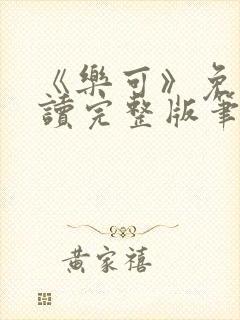 《樂可》免
讀完整版筆
黃家禧